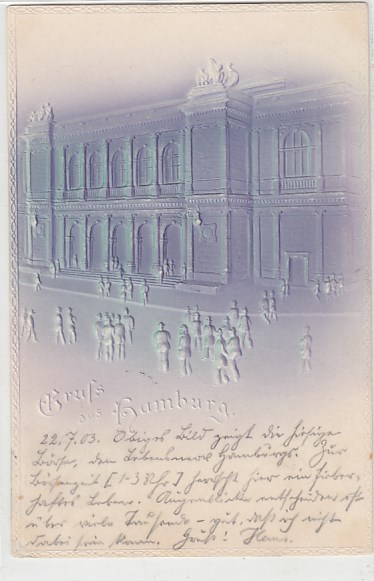 Gruss
aus Hamburg.
22.7.03. Obiges Bild zeigt die hiesige
Börse, den Lebensnerv Hamburgs. Zur
Börsenzeit [1-3 Uhr] herrscht hier ein fieber-
haftes Leben. Augenblicke entscheiden oft
über viele Tausende – gut, daß ich nicht
dabei sein kann. Gruß! Hans.